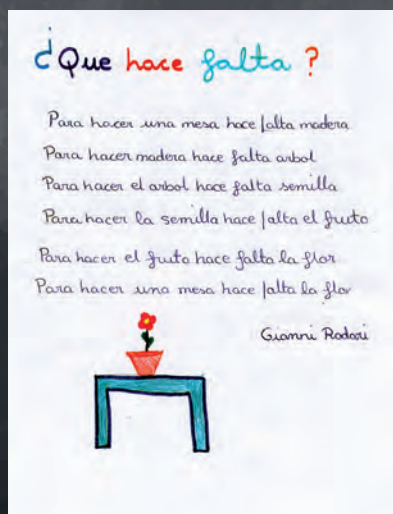 ¿Que hace falta?
Para hacer una mesa hace falta madera
Para hacer madera hace falta arbol
Para hacer el arbol hace falta semilla
Para hacer la semilla hace falta el fruto
Para hacer el fruto hace falta la flor
Para hacer una mesa hace falta la flor
Gianni Rodari